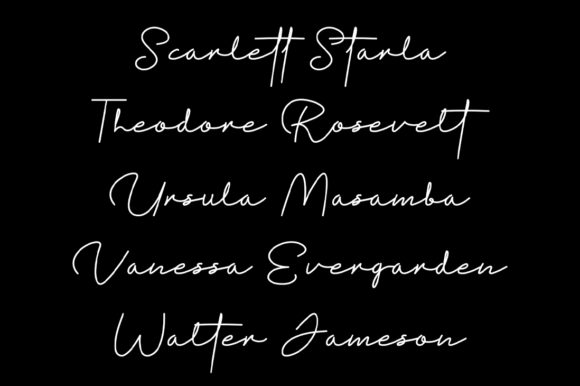 Scarlett Starla
Theodore Rosevelt
Ursula Masamba
Vanessa Evergarden
Walter Jameson